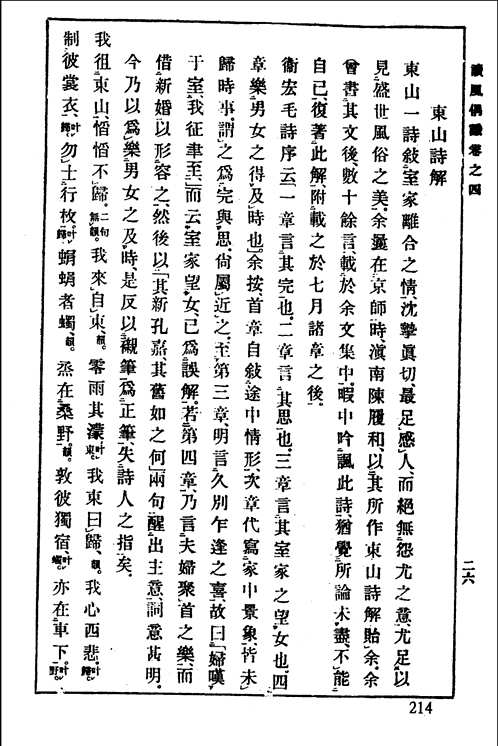 讀風偶識卷之四
二六
東山詩解
東山一詩敍室家離合之情、沈摯眞切、最足感人、而絕無怨尤之意、尤足以
見盛世風俗之美。余曩在京師時、滇南陳履和、以其所作東山詩解貽余。余
曾書其文後、數十餘言、載於余文集中。暇中吟諷此詩、猶覺所論未盡、不能
自已、復著此解、附載之於七月諸章之後。
衞宏毛詩序云、「一章言其完也。二章言其思也。三章言其室家之望女也、四
章樂男女之得及時也。」余按、首章自敍途中情形、次章代寫家中景象、皆未
歸時事。謂之爲完與思、尙屬近之。至第三章、明言久別乍逢之喜、故曰「婦嘆
于室、我征聿至、」而云室家望女、已爲誤解。若第四章、乃言夫婦聚首之樂、而
借新婚以形容之、然後以「其新孔嘉、其舊如之何」兩句、醒出主意、詞意甚明。
今乃以爲樂男女之及時、是反以襯筆爲正筆、失詩人之指矣。
我徂東山、慆慆不歸。二句無韻。我來自東、韻。零雨其濛。叶東。我東曰歸、韻。我心西悲。叶歸。
制彼裳衣、叶歸。勿士行枚。叶歸。蜎蜎者蠋、韻。烝在桑野。韻。敦彼獨宿、叶蠋。亦在車下。叶野。
214